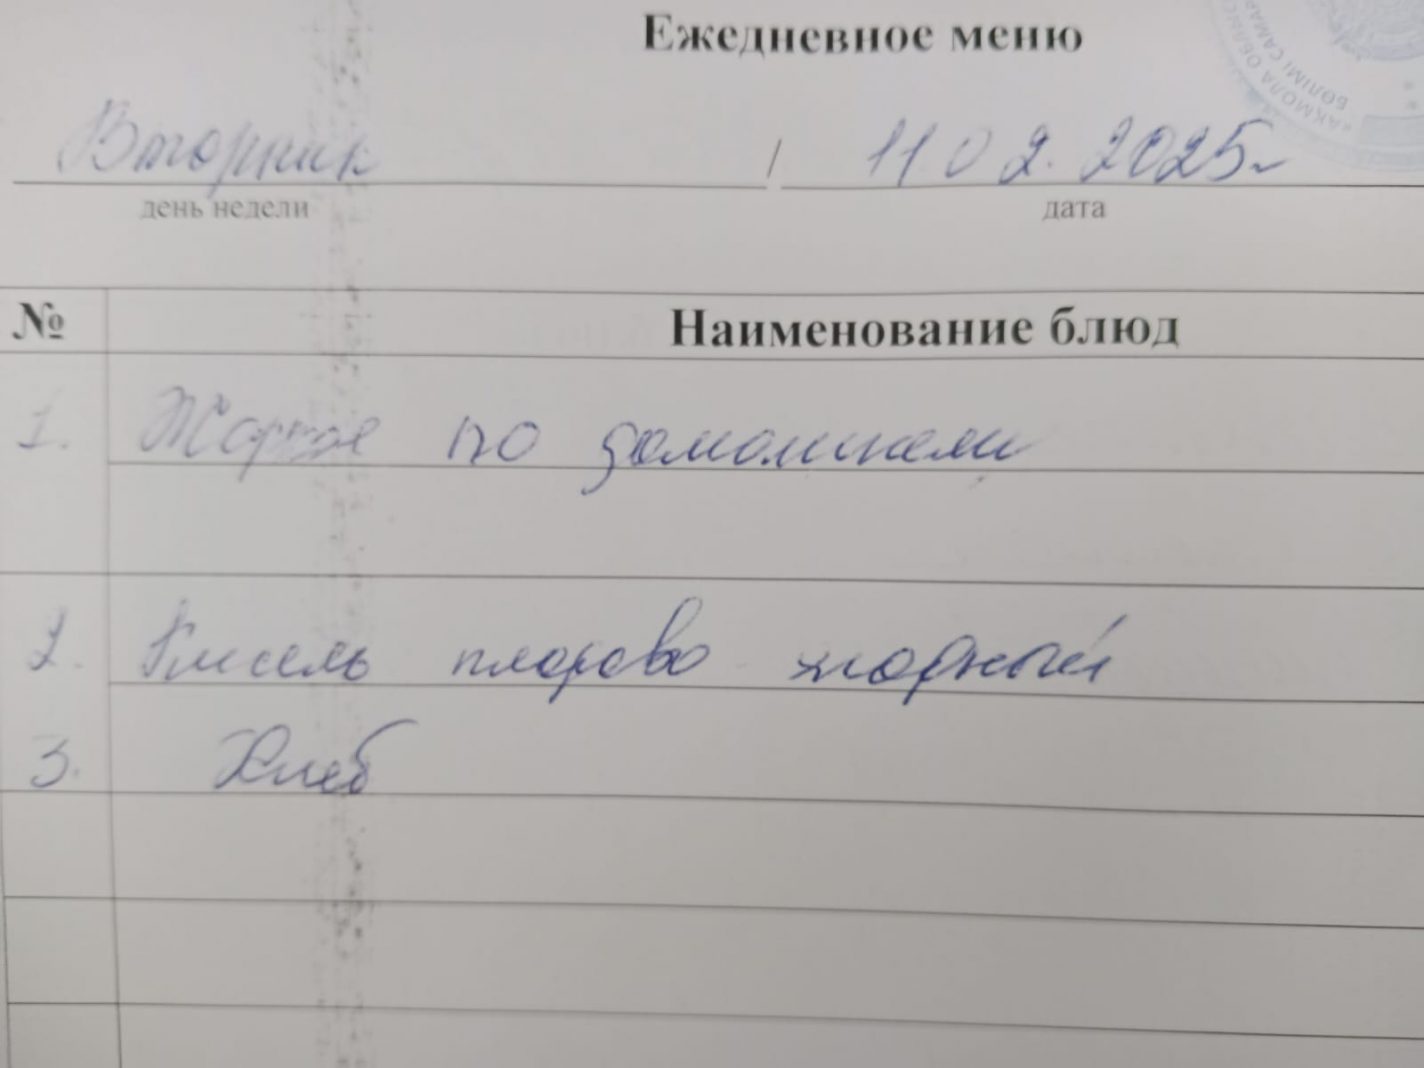 Ежедневное меню
Вторник / 11.02.2025г
день недели дата
№ Наименование блюд
1. Жаркое по домашнему
2. Кисель плодово ягодный
3. Хлеб
АҚМОЛА ОБЛЫС
БӨЛІМІ